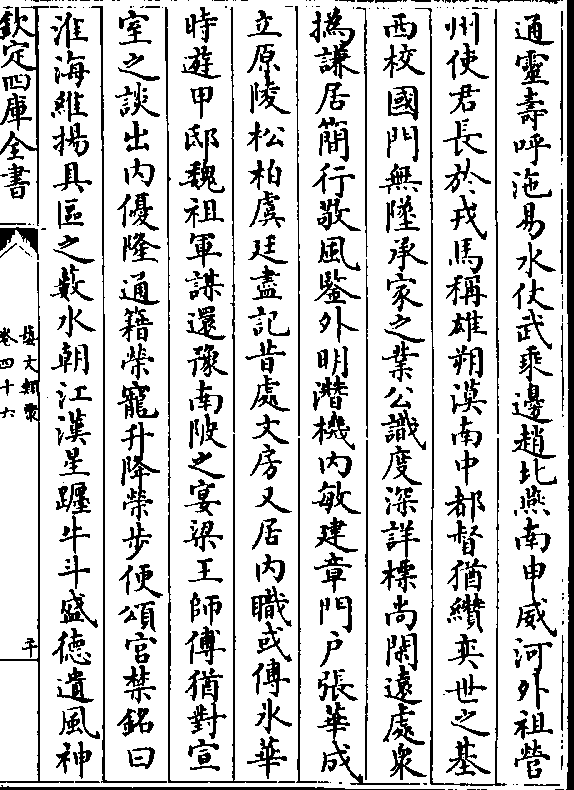 通靈壽呼沲易水仗武乘邊趙北燕南申威河外祖營
州使君長於戎馬稱雄朔漠南中都督猶纘奕世之基
西校國門無墜承家之業公識度深詳標尚閑遠處衆
撝謙居簡行敬風鑒外明濳機内敏建章門户張華成
立原陵松柏虞廷盡記昔處文房又居内職或傅氷華
時遊甲邸魏祖軍謀還豫南陂之宴梁王師傅猶對宣
室之談出内優隆通籍榮寵升降榮步便頌官禁銘曰
淮海維揚具區之藪水朝江漢星躔牛斗盛德遺風神
欽定四庫全書
藝文類聚
卷四十六
平